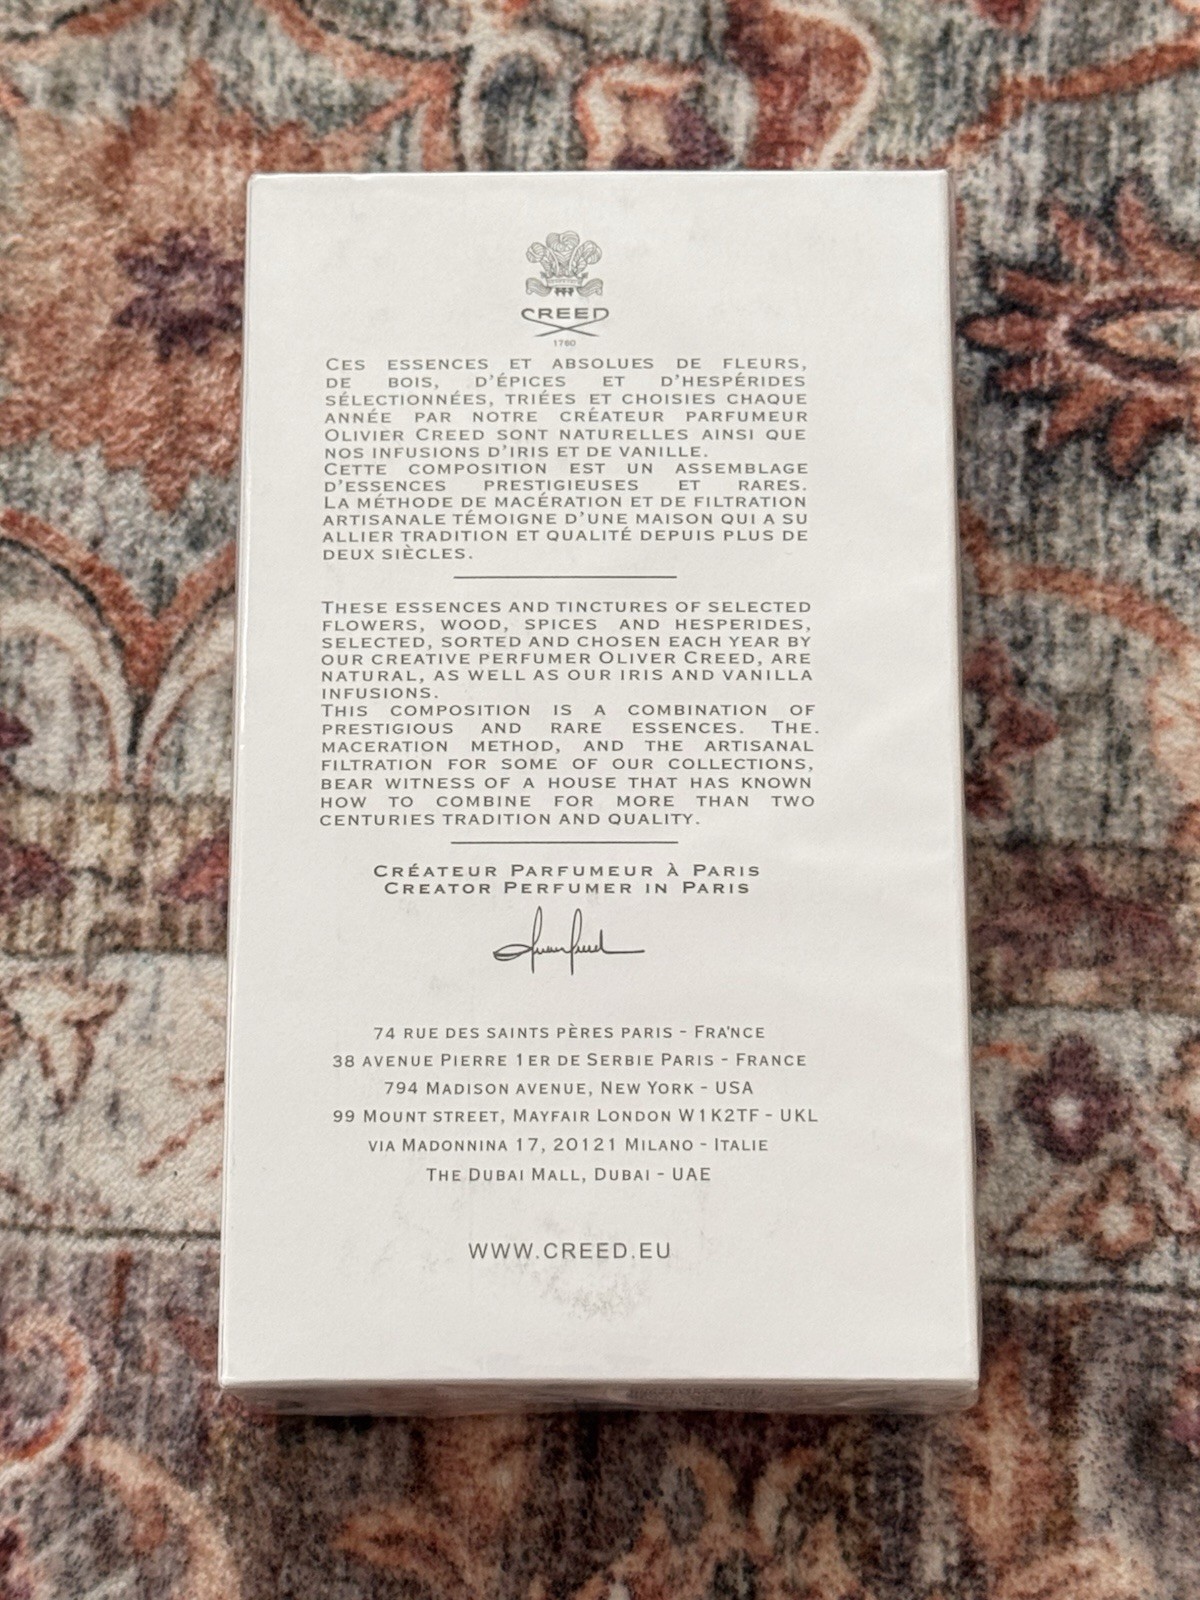 CREED
1760
CES ESSENCES ET ABSOLUES DE FLEURS,
DE BOIS, D'ÉPICES ET D'HESPÉRIDES
SÉLECTIONNÉES, TRIÉES ET CHOISIES CHAQUE
ANNÉE PAR NOTRE CRÉATEUR PARFUMEUR
OLIVIER CREED SONT NATURELLES AINSI QUE
NOS INFUSIONS D'IRIS ET DE VANILLE.
CETTE COMPOSITION EST UN ASSEMBLAGE
D'ESSENCES PRESTIGIEUSES ET RARES.
LA MÉTHODE DE MACÉRATION ET DE FILTRATION
ARTISANALE TÉMOIGNE D'UNE MAISON QUI A SU
ALLIER TRADITION ET QUALITÉ DEPUIS PLUS DE
DEUX SIÈCLES.
THESE ESSENCES AND TINCTURES OF SELECTED
FLOWERS, WOOD, SPICES AND HESPERIDES,
SELECTED, SORTED AND CHOSEN EACH YEAR BY
OUR CREATIVE PERFUMER OLIVER CREED, ARE
NATURAL, AS WELL AS OUR IRIS AND VANILLA
INFUSIONS.
THIS COMPOSITION IS A COMBINATION OF
PRESTIGIOUS AND RARE ESSENCES. THE.
MACERATION METHOD, AND THE ARTISANAL
FILTRATION FOR SOME OF OUR COLLECTIONS,
BEAR WITNESS OF A HOUSE THAT HAS KNOWN
HOW TO COMBINE FOR MORE THAN TWO
CENTURIES TRADITION AND QUALITY.
CRÉATEUR PARFUMEUR À PARIS
CREATOR PERFUMER IN PARIS
74 RUE DES SAINTS PÈRES PARIS - FRA'NCE
38 AVENUE PIERRE 1ER DE SERBIE PARIS - FRANCE
794 MADISON AVENUE, NEW YORK - USA
99 MOUNT STREET, MAYFAIR LONDON W1K2TF - UKL
VIA MADONNINA 17, 20121 MILANO - ITALIE
THE DUBAI MALL, DUBAI - UAE
WWW.CREED.EU